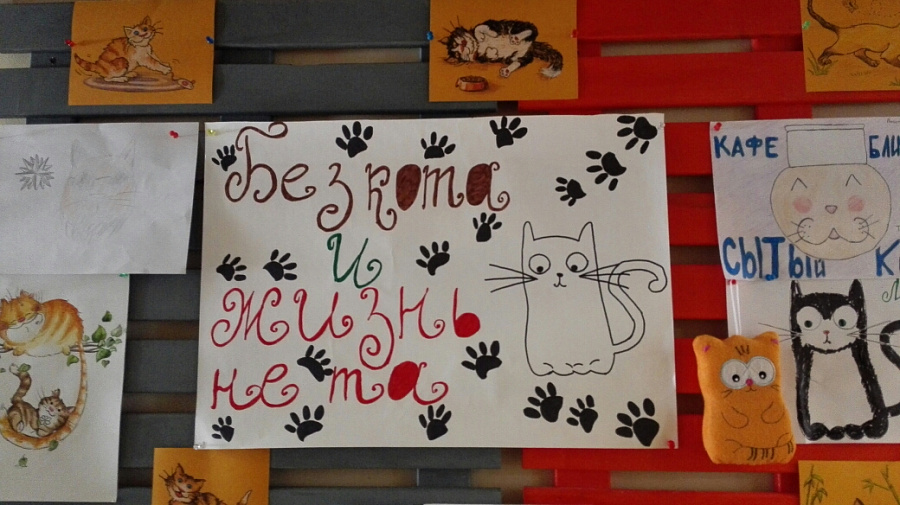 Без кота
и
жизнь
не та
КАФЕ
СЫТый